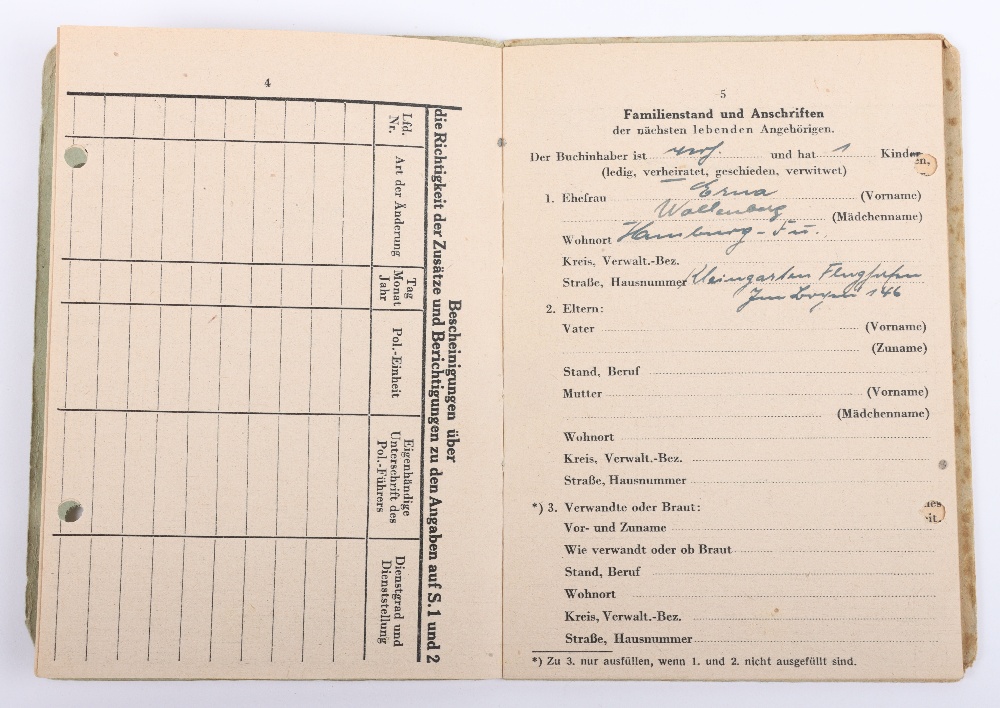 4
Bescheinigungen über
die Richtigkeit der Zusätze und Berichtigungen zu den Angaben auf S. 1 und 2
Lfd.
Nr.
Art der Änderung
Tag
Monat
Jahr
Pol.-Einheit
Eigenhändige
Unterschrift des
Pol.-Führers
Dienstgrad und
Dienststellung
5
Familienstand und Anschriften
der nächsten lebenden Angehörigen.
Der Buchinhaber ist und hat 1 Kinder
en,
(ledig, verheiratet, geschieden, verwitwet)
1. Ehefrau Erna (Vorname)
Wallenberg (Mädchenname)
Wohnort Hamburg - Fu.
Kreis, Verwalt.-Bez.
Straße, Hausnummer Kleingarten Flughafen
146
2. Eltern:
Vater (Vorname)
(Zuname)
Stand, Beruf
Mutter (Vorname)
(Mädchenname)
Wohnort
Kreis, Verwalt.-Bez.
Straße, Hausnummer
*) 3. Verwandte oder Braut:
Vor- und Zuname
Wie verwandt oder ob Braut
Stand, Beruf
Wohnort
Kreis, Verwalt.-Bez.
Straße, Hausnummer
*) Zu 3. nur ausfüllen, wenn 1. und 2. nicht ausgefüllt sind.